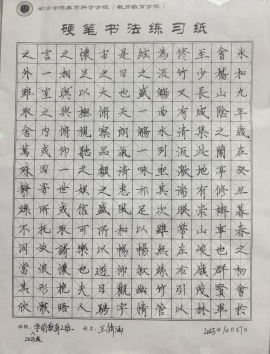 硬笔书法练习纸
永和九年歲在癸丑暮春之初會於
會稽山陰之蘭亭修禊事也群賢畢
至少長咸集此地有崇山峻嶺茂林
修竹又有清流激湍映帶左右引以
為流觴曲水列坐其次雖無絲竹管
絃之盛一觴一詠亦足以暢敘幽情
是日也天朗氣清惠風和暢仰觀宇
之大俯察品類之盛所以遊目騁
懷足以極視聽之娛信可樂也夫人
之相與俯仰一世或取諸懷抱
言一室之內或因寄所託放浪形骸
之外雖趣舍萬殊靜躁不同當其欣
班级：学前教育2班 姓名：王
2023级